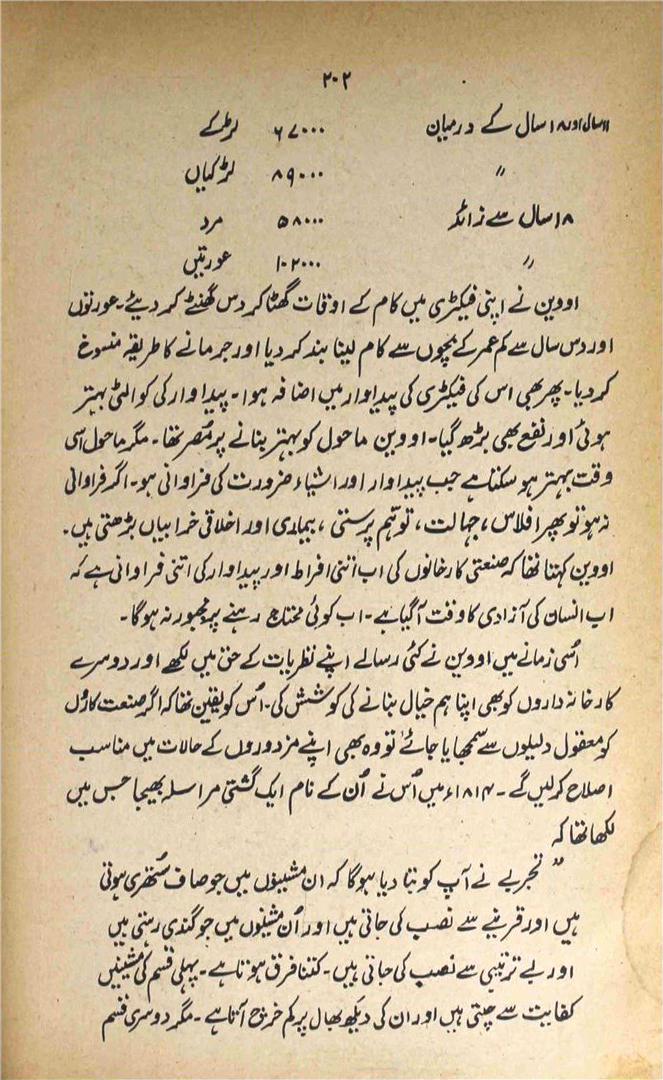 ۲۰۲
۱۱ سال اور ۱۸ سال کے درمیان ۶۷۰۰۰ لڑکے
〃 ۸۹۰۰۰ لڑکیاں
۱۸ سال سے زائد ۵۸۰۰۰ مرد
〃 ۱۰۲۰۰۰ عورتیں
اووین نے اپنی فیکٹری میں کام کے اوقات گھٹا کر دس گھنٹے کر دیئے۔ عورتوں
اور دس سال سے کم عمر کے بچوں سے کام لینا بند کر دیا اور جرمانے کا طریقہ منسوخ
کر دیا۔ پھر بھی اس کی فیکٹری کی پیداوار میں اضافہ ہوا۔ پیداوار کی کوالٹی بہتر
ہوئی اور نفع بھی بڑھ گیا۔ اووین ماحول کو بہتر بنانے پر مُصر تھا۔ مگر ماحول اسی
وقت بہتر ہو سکتا ہے جب پیداوار اور اشیاء ضرورت کی فراوانی ہو۔ اگر فراوانی
نہ ہو تو پھر افلاس، جہالت، توہم پرستی، بیماری اور اخلاقی خرابیاں بڑھتی ہیں۔
اووین کہتا تھا کہ صنعتی کارخانوں کی اب اتنی افراط اور پیداوار کی اتنی فراوانی ہے کہ
اب انسان کی آزادی کا وقت آ گیا ہے۔ اب کوئی محتاج رہنے پر مجبور نہ ہوگا۔
اُسی زمانے میں اووین نے کئی رسالے اپنے نظریات کے حق میں لکھے اور دوسرے
کارخانہ داروں کو بھی اپنا ہم خیال بنانے کی کوشش کی۔ اُس کو یقین تھا کہ اگر صنعت کاروں
کو معقول دلیلوں سے سمجھایا جائے تو وہ بھی اپنے مزدوروں کے حالات میں مناسب
اصلاح کر لیں گے۔ ۱۸۱۴ء میں اُس نے اُن کے نام ایک گشتی مراسلہ بھیجا جس میں
لکھا تھا کہ
”تجربے نے آپ کو بتا دیا ہوگا کہ ان مشینوں میں جو صاف ستھری ہوتی
ہیں اور قرینے سے نصب کی جاتی ہیں اور اُن مشینوں میں جو گندی رہتی ہیں
اور بے ترتیبی سے نصب کی جاتی ہیں۔ کتنا فرق ہوتا ہے۔ پہلی قسم کی مشینیں
کفایت سے چلتی ہیں اور ان کی دیکھ بھال پر کم خرچ آتا ہے۔ مگر دوسری قسم